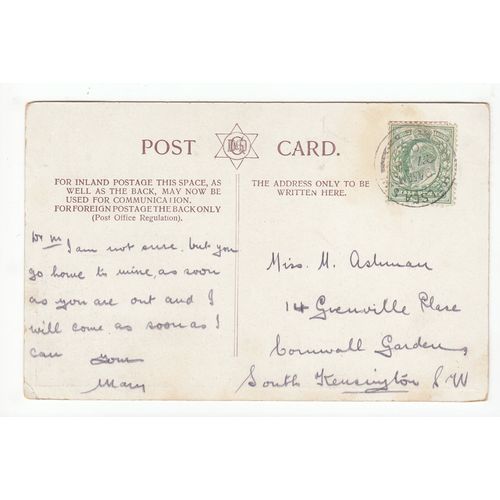 POST CARD.
FOR INLAND POSTAGE THIS SPACE, AS
WELL AS THE BACK, MAY NOW BE
USED FOR COMMUNICATION.
FOR FOREIGN POSTAGE THE BACK ONLY
(Post Office Regulation).
THE ADDRESS ONLY TO BE
WRITTEN HERE.
Dr M I am not sure but you
go home to mine, as soon
as you are out and I
will come as soon as I
can
Mary
Miss. M. Ashman
14 Grenville Place
Cornwall Gardens
South Kensington S.W